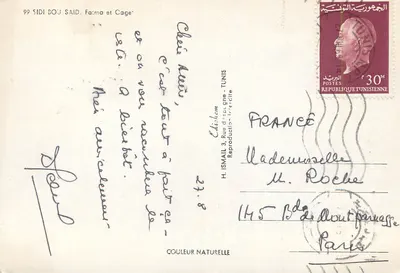 99 SIDI BOU SAID. Femme et Cage
Chère Amie,
c'est tout à fait ça
et on vous racontera le
A bientôt.
Très amicalement
27.8
H. ISMAIL 3, Rue
TUNIS
Reproduction interdite
COULEUR NATURELLE
الجمهورية التونسية
POSTES
البريد
30
REPUBLIQUE TUNISIENNE
FRANCE
Mademoiselle
M. Roche
145 Bd de Montparnasse
Paris